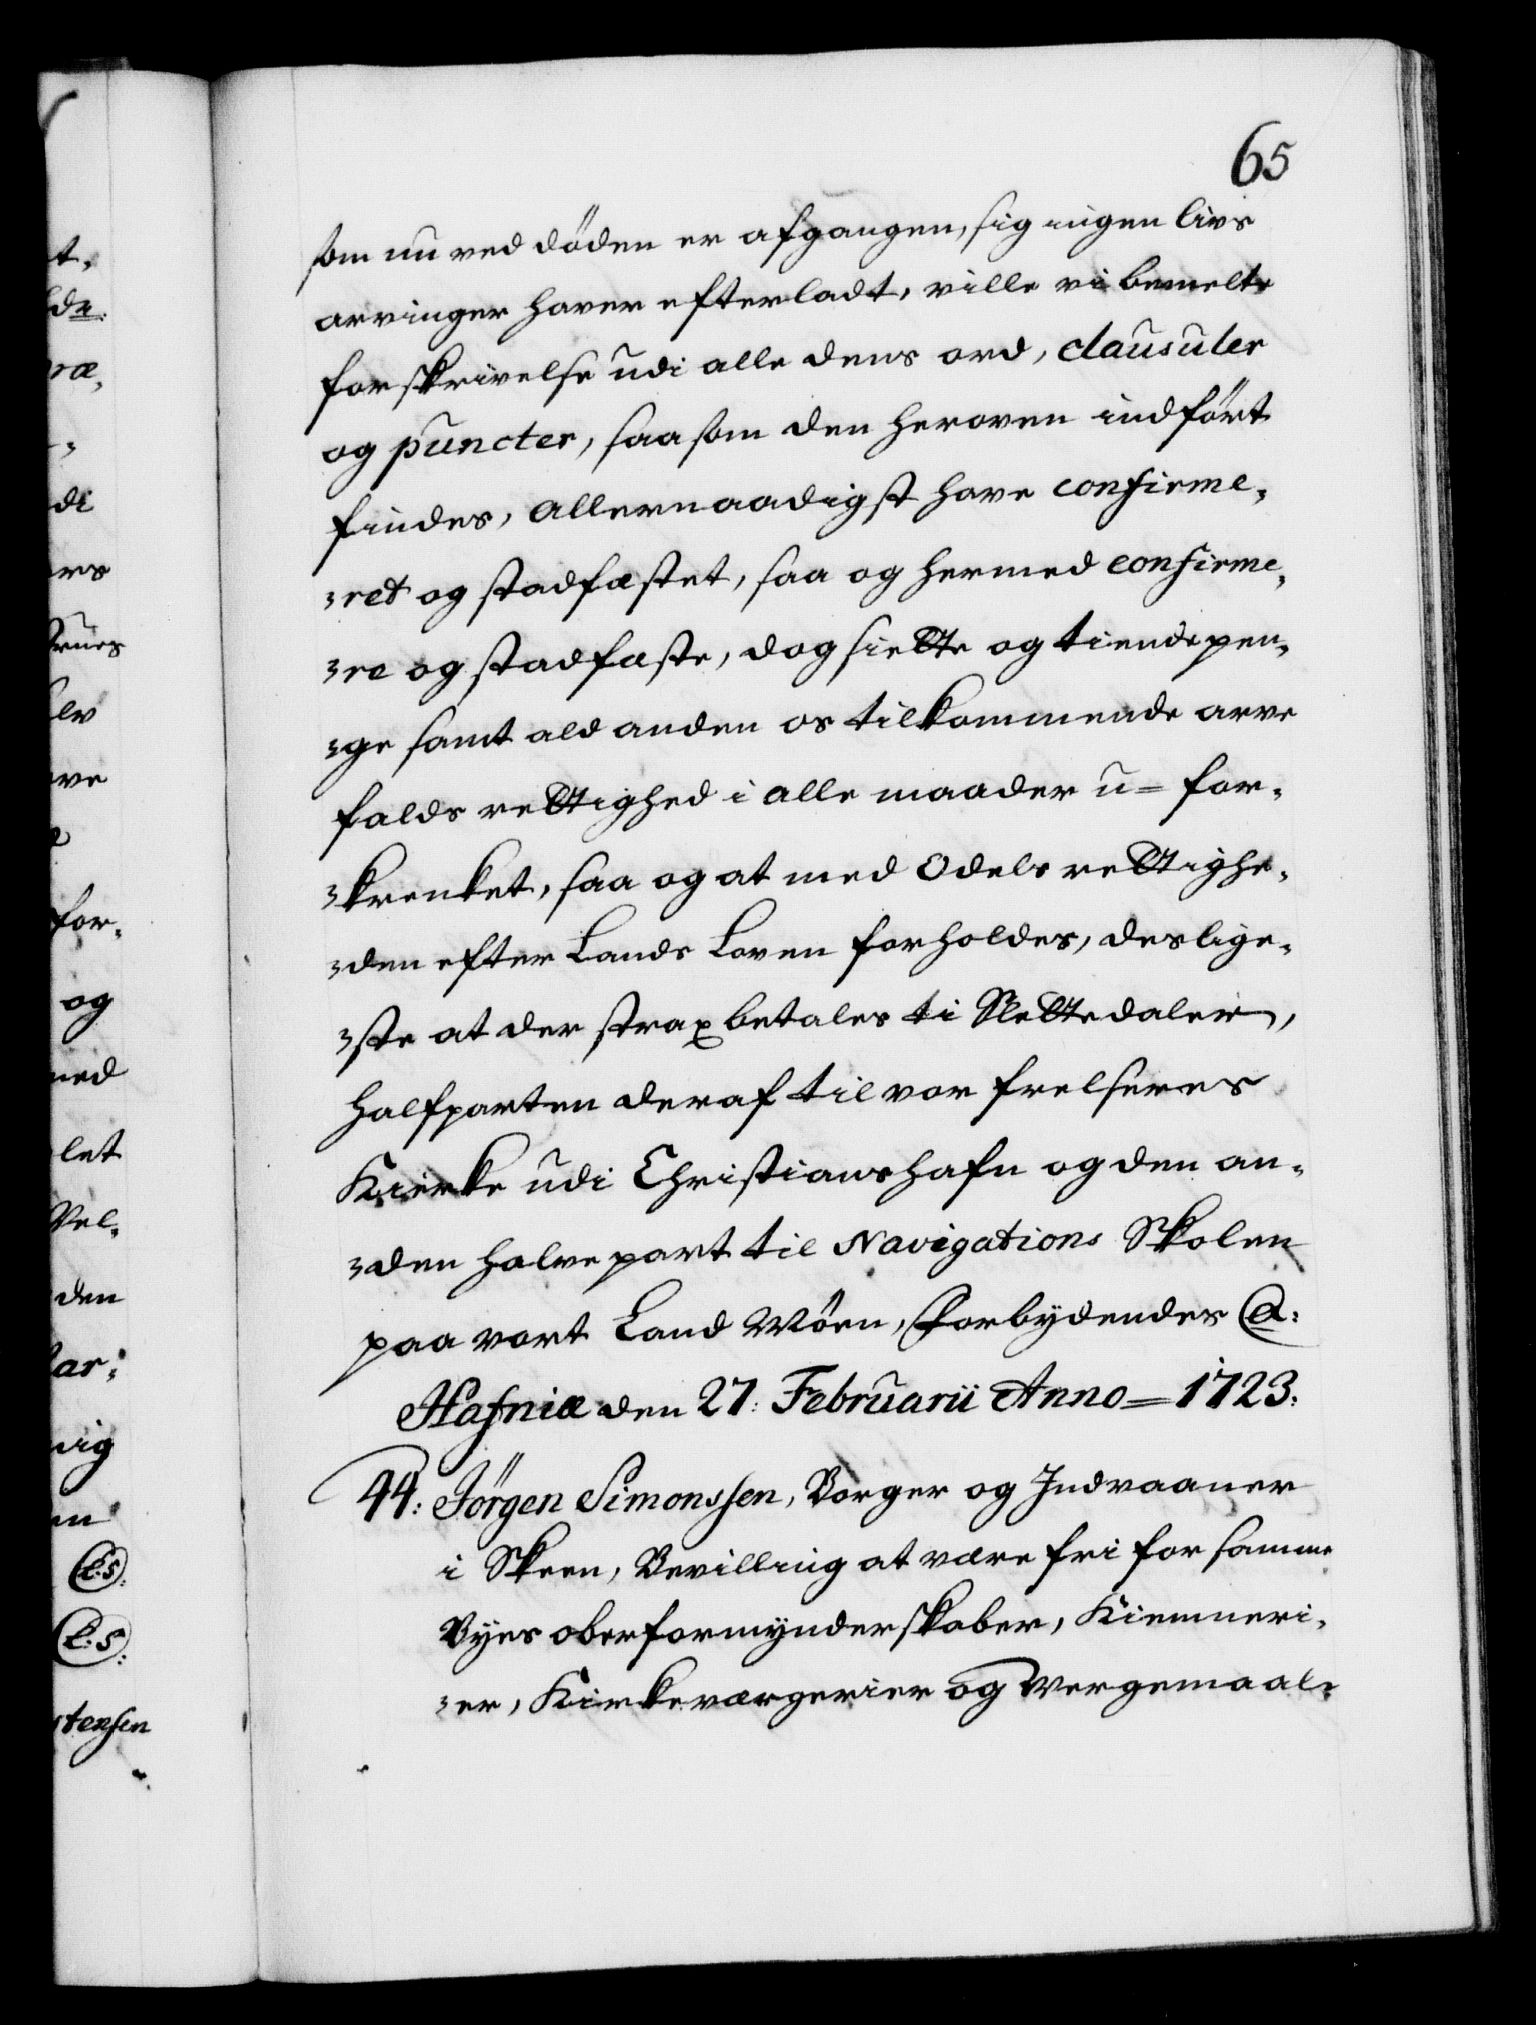 65
som nu ved döden er afgangen, sig ingen livs
arvinger haver efterladt, ville vi bemelte
forskrivelse udi alle dens ord, clausuler
og puncter, saasom den heroven indfört
findes, allernaadigst have confirme,
,ret og stadfæstet, saa og hermed confirme,
,re og stadfæste, dog siette og tiende pen,
,ge samt ald anden os tilkommende arve
falds rettighed i alle maader u=for,
,krenket, saa og at med Odels rettighe,
,den efter Lands Loven forholdes, deslige,
,ste at der strax betales ti Slettedaler,
halfparten deraf til vor frelseres
Kirke udi Christianshafn og den an,
,den halve part til Navigations Skolen
paa vort Land Möen, Forbydendes @:
Hafniæ den 27: Februarii Anno=1723:
44: Jörgen Simonssen, Borger og Indvaaner
i Skeen, Bevilling at være fri for samme
Byes oberformynderskaber, Kiemneri,
,er, Kirkeværgerier og Wergemaal,
t,
ræ,
di
ers
elv
ve
for,
og
med
let
Vel,
den
ar,
vig
en
L:S:
L:S:
stensen